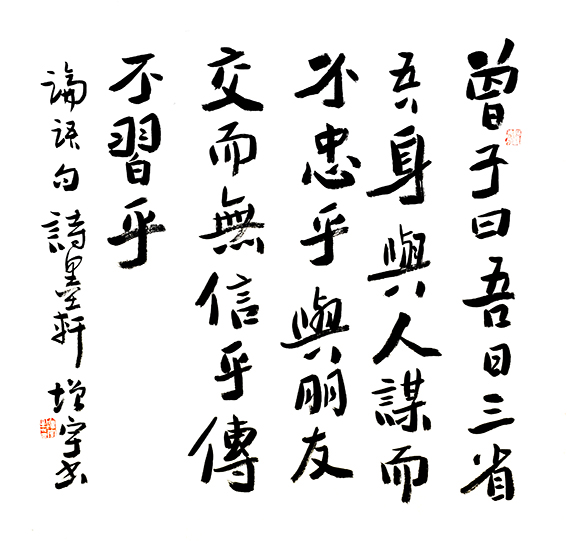 曾子曰吾日三省
吾身與人謀而
不忠乎與朋友
交而無信乎傳
不習乎
論語句 詩墨軒 增宇書